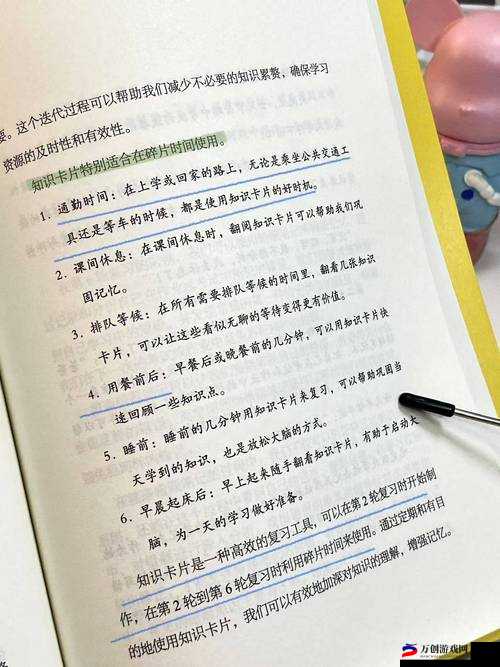 要。这个迭代过程可以帮助我们减少不必要的知识累赘，确保学习
资源的及时性和有效性。
知识卡片特别适合在碎片时间使用。
1. 通勤时间：在上学或回家的路上，无论是乘坐公共交通工
具还是等车的时候，都是使用知识卡片的好时机。
2. 课间休息：在课间休息时，翻阅知识卡片可以帮助我们巩
固记忆。
3. 排队等候：在所有需要排队等候的时间里，翻看几张知识
卡片，可以让这些看似无聊的等待变得更有价值。
4. 用餐前后：早餐后或晚餐前的几分钟，可以用知识卡片快
速回顾一些知识点。
5. 睡前：睡前的几分钟用知识卡片来复习，可以帮助巩固当
天学到的知识，也是放松大脑的方式。
6. 早晨起床后：早上起来随手翻看知识卡片，有助于启动大
脑，为一天的学习做好准备。
知识卡片是一种高效的复习工具，可以在第2轮复习时开始制
作，在第2轮到第6轮复习时利用碎片时间来使用。通过定期和有目
的地使用知识卡片，我们可以有效地加深对知识的理解，增强记忆。
万创游戏网